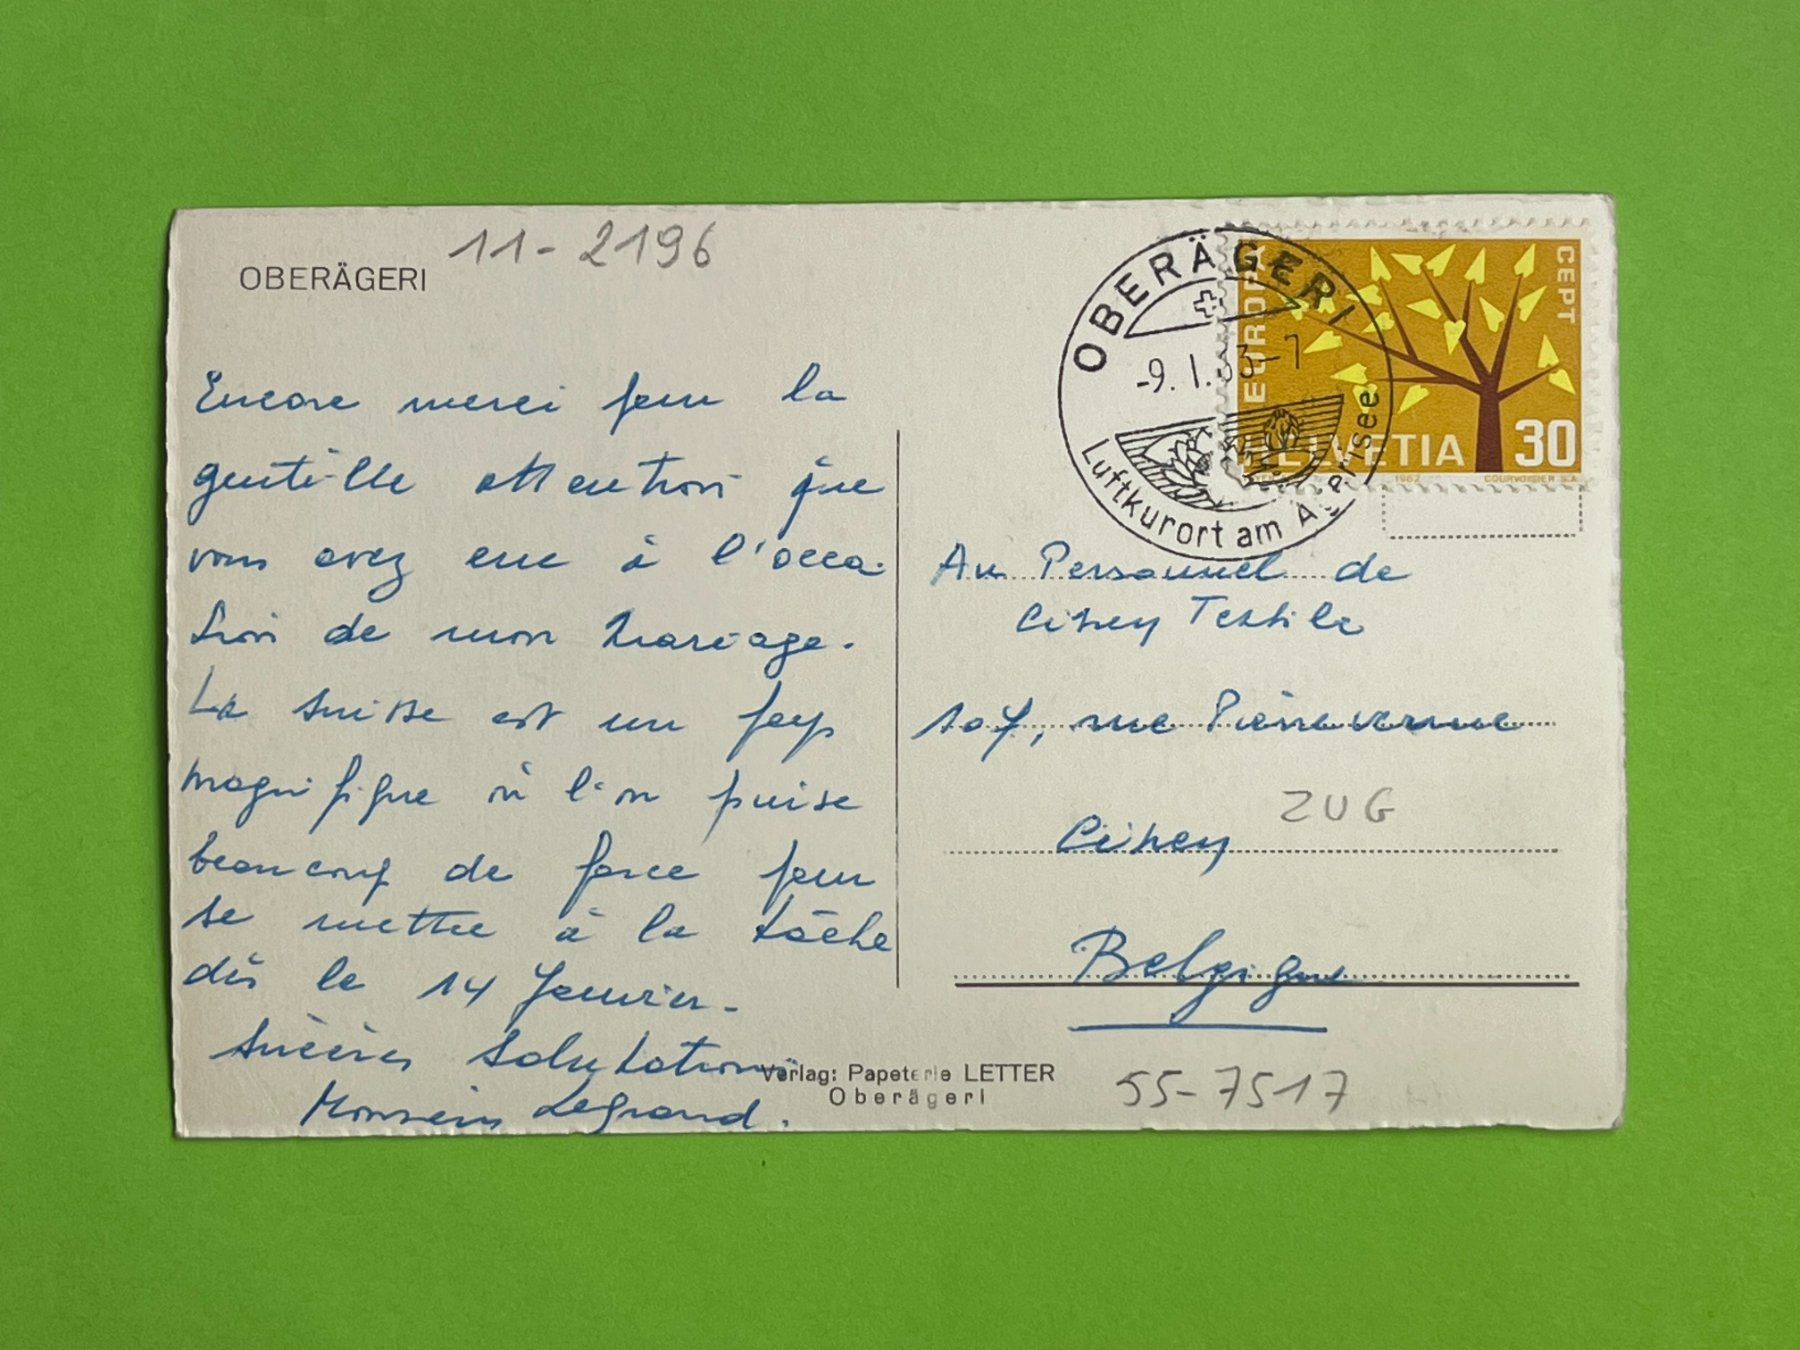 OBERÄGERI
11-2196
Encore merci pour la
gentille attention que
vous avez eue à l'occa-
sion de mon mariage.
La Suisse est un pays
magnifique où l'on puise
beaucoup de force pour
se mettre à la tâche
dès le 14 Janvier.
Sincères Salutations
Legrand.
OBERÄGERI
-9.1.63-7
Luftkurort am Aegerisee
EUROPA
CEPT
HELVETIA
30
1962
COURVOISIER S.A.
Au Personnel de
Ciney Textile
107, rue
Ciney
ZUG
Belgique
Verlag: Papeterie LETTER
Oberägeri
55-7517